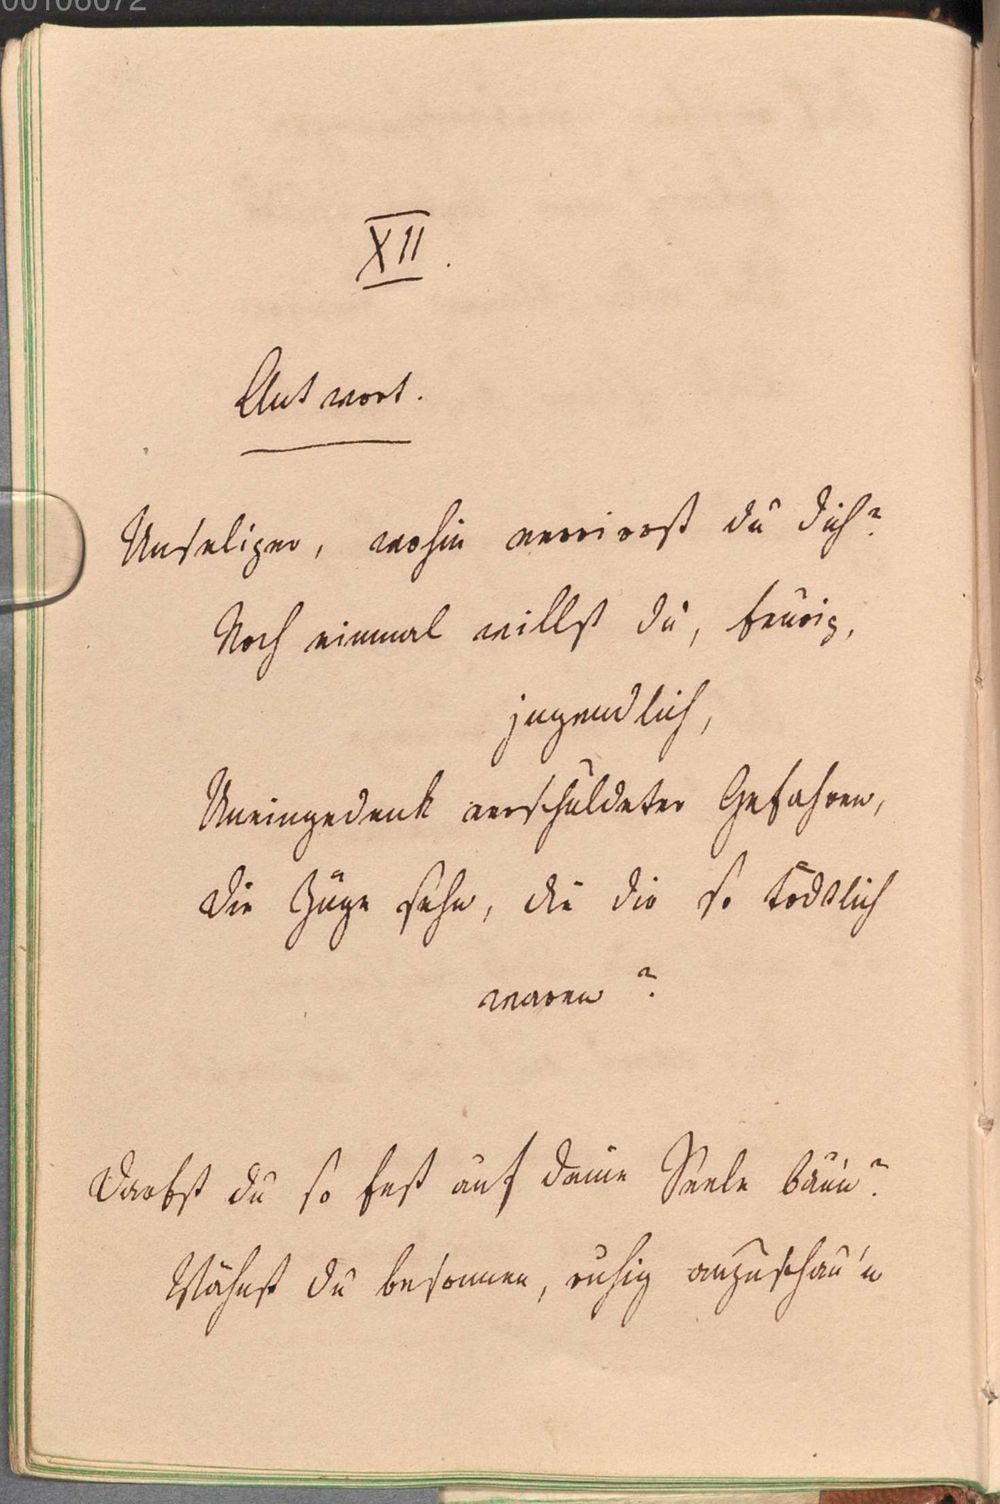 00106072
XII.
Antwort.
Unseliger, wohin verrirrst du dich?
Noch einmal willst du, feurig,
jugendlich,
Uneingedenk verschuldeter Gefahren,
Die Züge sehn, die dir so tödtlich
waren?
Darfst du so fest auf deine Seele bau'n?
Wähnst du besonnen, ruhig anzuschau'n